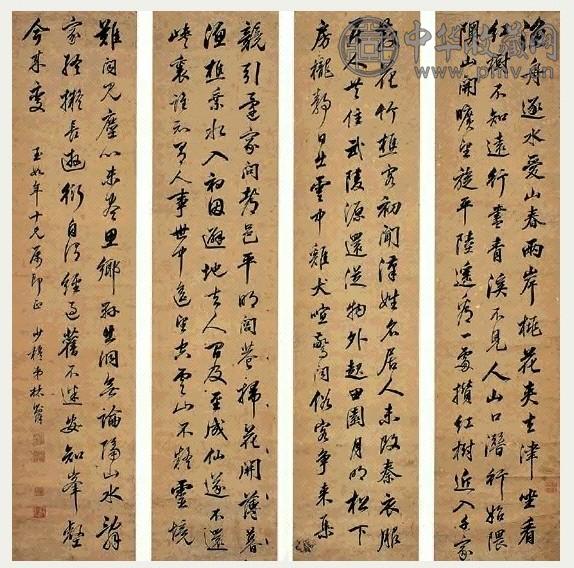 漁舟逐水愛山春兩岸桃花夾去津坐看
紅樹不知遠行盡青溪不見人山口潛行始隈
隩山開曠望旋平陸遙看一處攢紅樹近入千家
散花竹樵客初聞漢姓名居人未改秦衣服
居人共住武陵源還從物外起田園月明松下
房櫳靜日出雲中雞犬喧驚聞俗客爭來集
競引還家問都邑平明閭巷掃花開薄暮
漁樵乘水入初因避地去人間及至成仙遂不還
峽裏誰知有人事世中遙望空雲山不疑靈境
難聞見塵心未盡思鄉縣出洞無論隔山水辭
家終擬長遊衍自謂經過舊不迷安知峯壑
今來變
玉如年十兄屬即正 少穆弟林
中华收藏网
www.pmv.cn